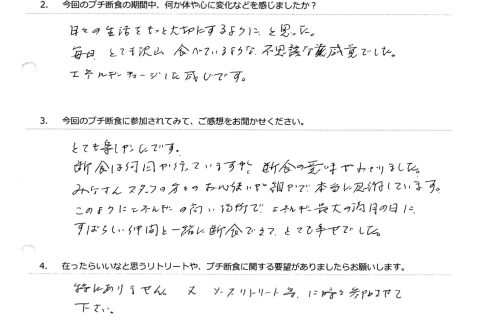 2. 今回のプチ断食の期間中、何か体や心に変化などを感じましたか？
日々の生活をもっと大切にするように、と思った。
毎日、とても沢山食べているような、不思議な感覚でした。
エネルギーチャージした感じです。
3. 今回のプチ断食に参加されてみて、ご感想をお聞かせください。
とても楽しかったです。
断食は何回か行っていますが、断食の意味がわかりました。
みなさん、スタッフの方々のお心使いが細やかで本当に感謝しています。
このようにエネルギーの高い場所で、エネルギー最大の満月の日に、
すばらしい仲間と一緒に断食できて、とても幸せでした。
4. 在ったらいいなと思うリトリートや、プチ断食に関する要望がありましたらお願いします。
特にありません。又、リトリート等、に時々参加させて
下さい。